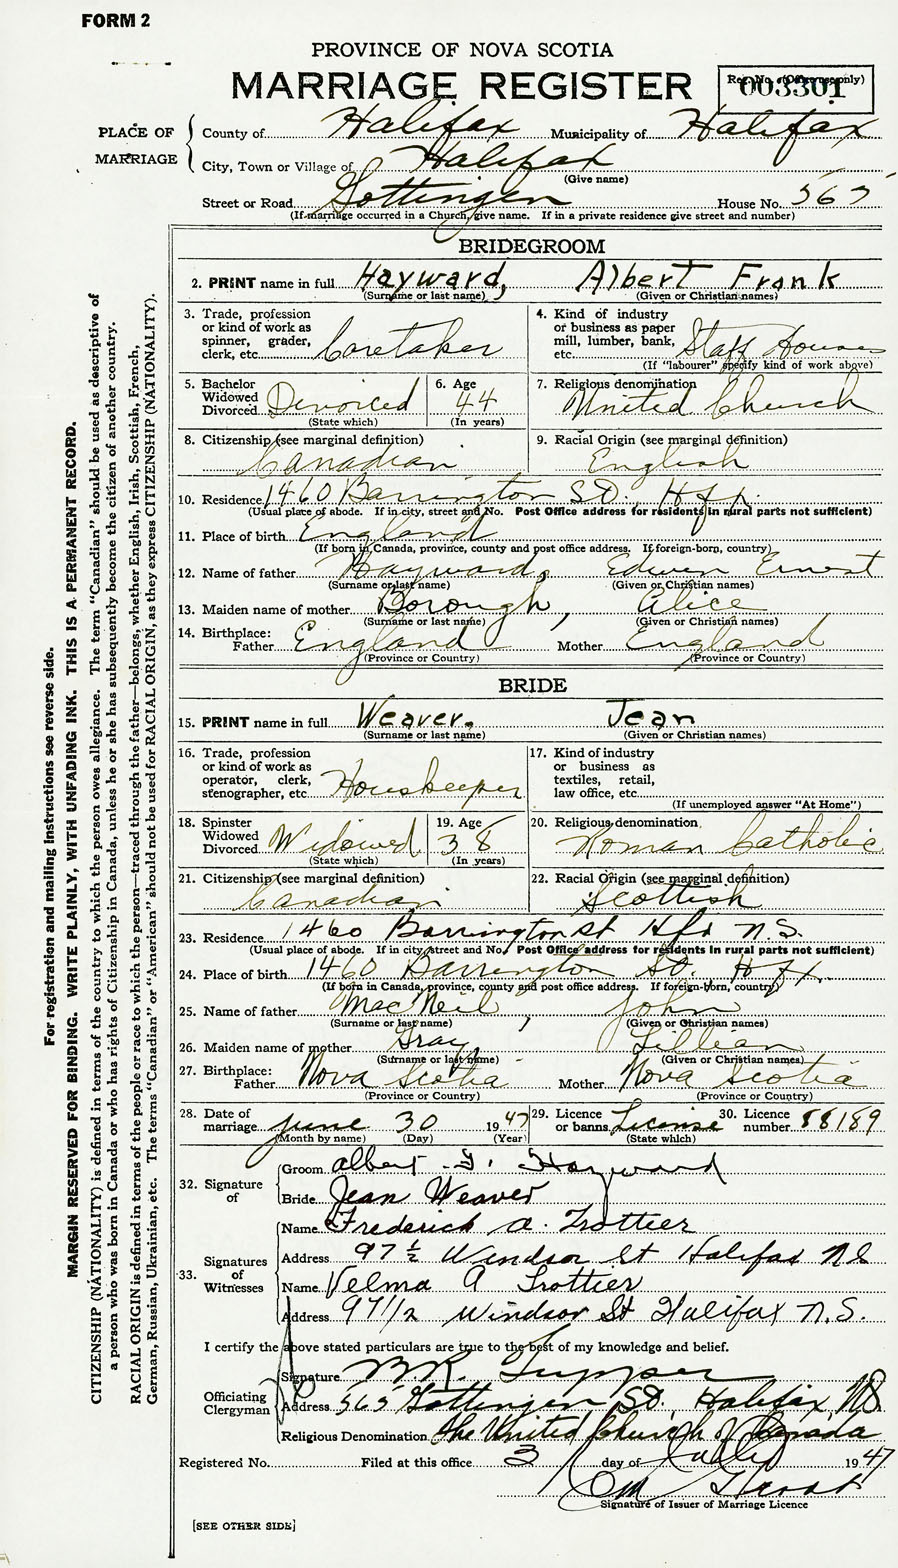 FORM 2
PROVINCE OF NOVA SCOTIA
MARRIAGE REGISTER
Reg. No. (Office use only)
003301
PLACE OF MARRIAGE
County of Halifax Municipality of Halifax
City, Town or Village of Halifax
(Give name)
Street or Road Gottingen House No. 565
(If marriage occurred in a Church, give name. If in a private residence give street and number)
BRIDEGROOM
2. PRINT name in full Hayward, Albert Frank
(Surname or last name) (Given or Christian names)
3. Trade, profession or kind of work as spinner, grader, clerk, etc. Caretaker
4. Kind of industry or business as paper mill, lumber, bank, etc. Staff Houses
(If "labourer" specify kind of work above)
5. Bachelor Widowed Divorced Divorced
(State which)
6. Age 44
(In years)
7. Religious denomination United Church
8. Citizenship (see marginal definition) Canadian
9. Racial Origin (see marginal definition) English
10. Residence 1460 Barrington St. Hfx.
(Usual place of abode. If in city, street and No. Post Office address for residents in rural parts not sufficient)
11. Place of birth England
(If born in Canada, province, county and post office address. If foreign-born, country)
12. Name of father Hayward, Edwin Ernest
(Surname or last name) (Given or Christian names)
13. Maiden name of mother Borough, Alice
(Surname or last name) (Given or Christian names)
14. Birthplace: Father England Mother England
(Province or Country) (Province or Country)
BRIDE
15. PRINT name in full Weaver. Jean
(Surname or last name) (Given or Christian names)
16. Trade, profession or kind of work as operator, clerk, stenographer, etc. Housekeeper
17. Kind of industry or business as textiles, retail, law office, etc.
(If unemployed answer "At Home")
18. Spinster Widowed Divorced Widowed
(State which)
19. Age 38
(In years)
20. Religious denomination Roman Catholic
21. Citizenship (see marginal definition) Canadian
22. Racial Origin (see marginal definition) Scottish
23. Residence 1460 Barrington St Hfx N.S.
(Usual place of abode. If in city, street and No. Post Office address for residents in rural parts not sufficient)
24. Place of birth 1460 Barrington St. Hfx.
(If born in Canada, province, county and post office address. If foreign-born, country)
25. Name of father MacNeil, John
(Surname or last name) (Given or Christian names)
26. Maiden name of mother Gray, Lillian
(Surname or last name) (Given or Christian names)
27. Birthplace: Father Nova Scotia Mother Nova Scotia
(Province or Country) (Province or Country)
28. Date of marriage June 30 1947
(Month by name) (Day) (Year)
29. Licence or banns License
(State which)
30. Licence number 88189
32. Signature of
Groom Albert F. Hayward
Bride Jean Weaver
33. Signatures of Witnesses
Name Frederick A. Trottier
Address 97 ½ Windsor St Halifax NS
Name Velma A Trottier
Address 97 1/2 Windsor St Halifax N.S.
I certify the above stated particulars are true to the best of my knowledge and belief.
Officiating Clergyman
Signature Tupper
Address 565 Gottingen St. Halifax NS.
Religious Denomination The United Church of Canada
Registered No. Filed at this office 3 day of July 1947
Signature of Issuer of Marriage Licence
[SEE OTHER SIDE]
For registration and mailing instructions see reverse side.
MARGIN RESERVED FOR BINDING. WRITE PLAINLY, WITH UNFADING INK. THIS IS A PERMANENT RECORD.
CITIZENSHIP (NATIONALITY) is defined in terms of the country to which the person owes allegiance. The term "Canadian" should be used as descriptive of
a person who was born in Canada or who has rights of Citizenship in Canada, unless he or she has subsequently become the citizen of another country.
RACIAL ORIGIN is defined in terms of the people or race to which the person—traced through the father—belongs, whether English, Irish, Scottish, French,
German, Russian, Ukrainian, etc. The terms "Canadian" or "American" should not be used for RACIAL ORIGIN, as they express CITIZENSHIP (NATIONALITY).